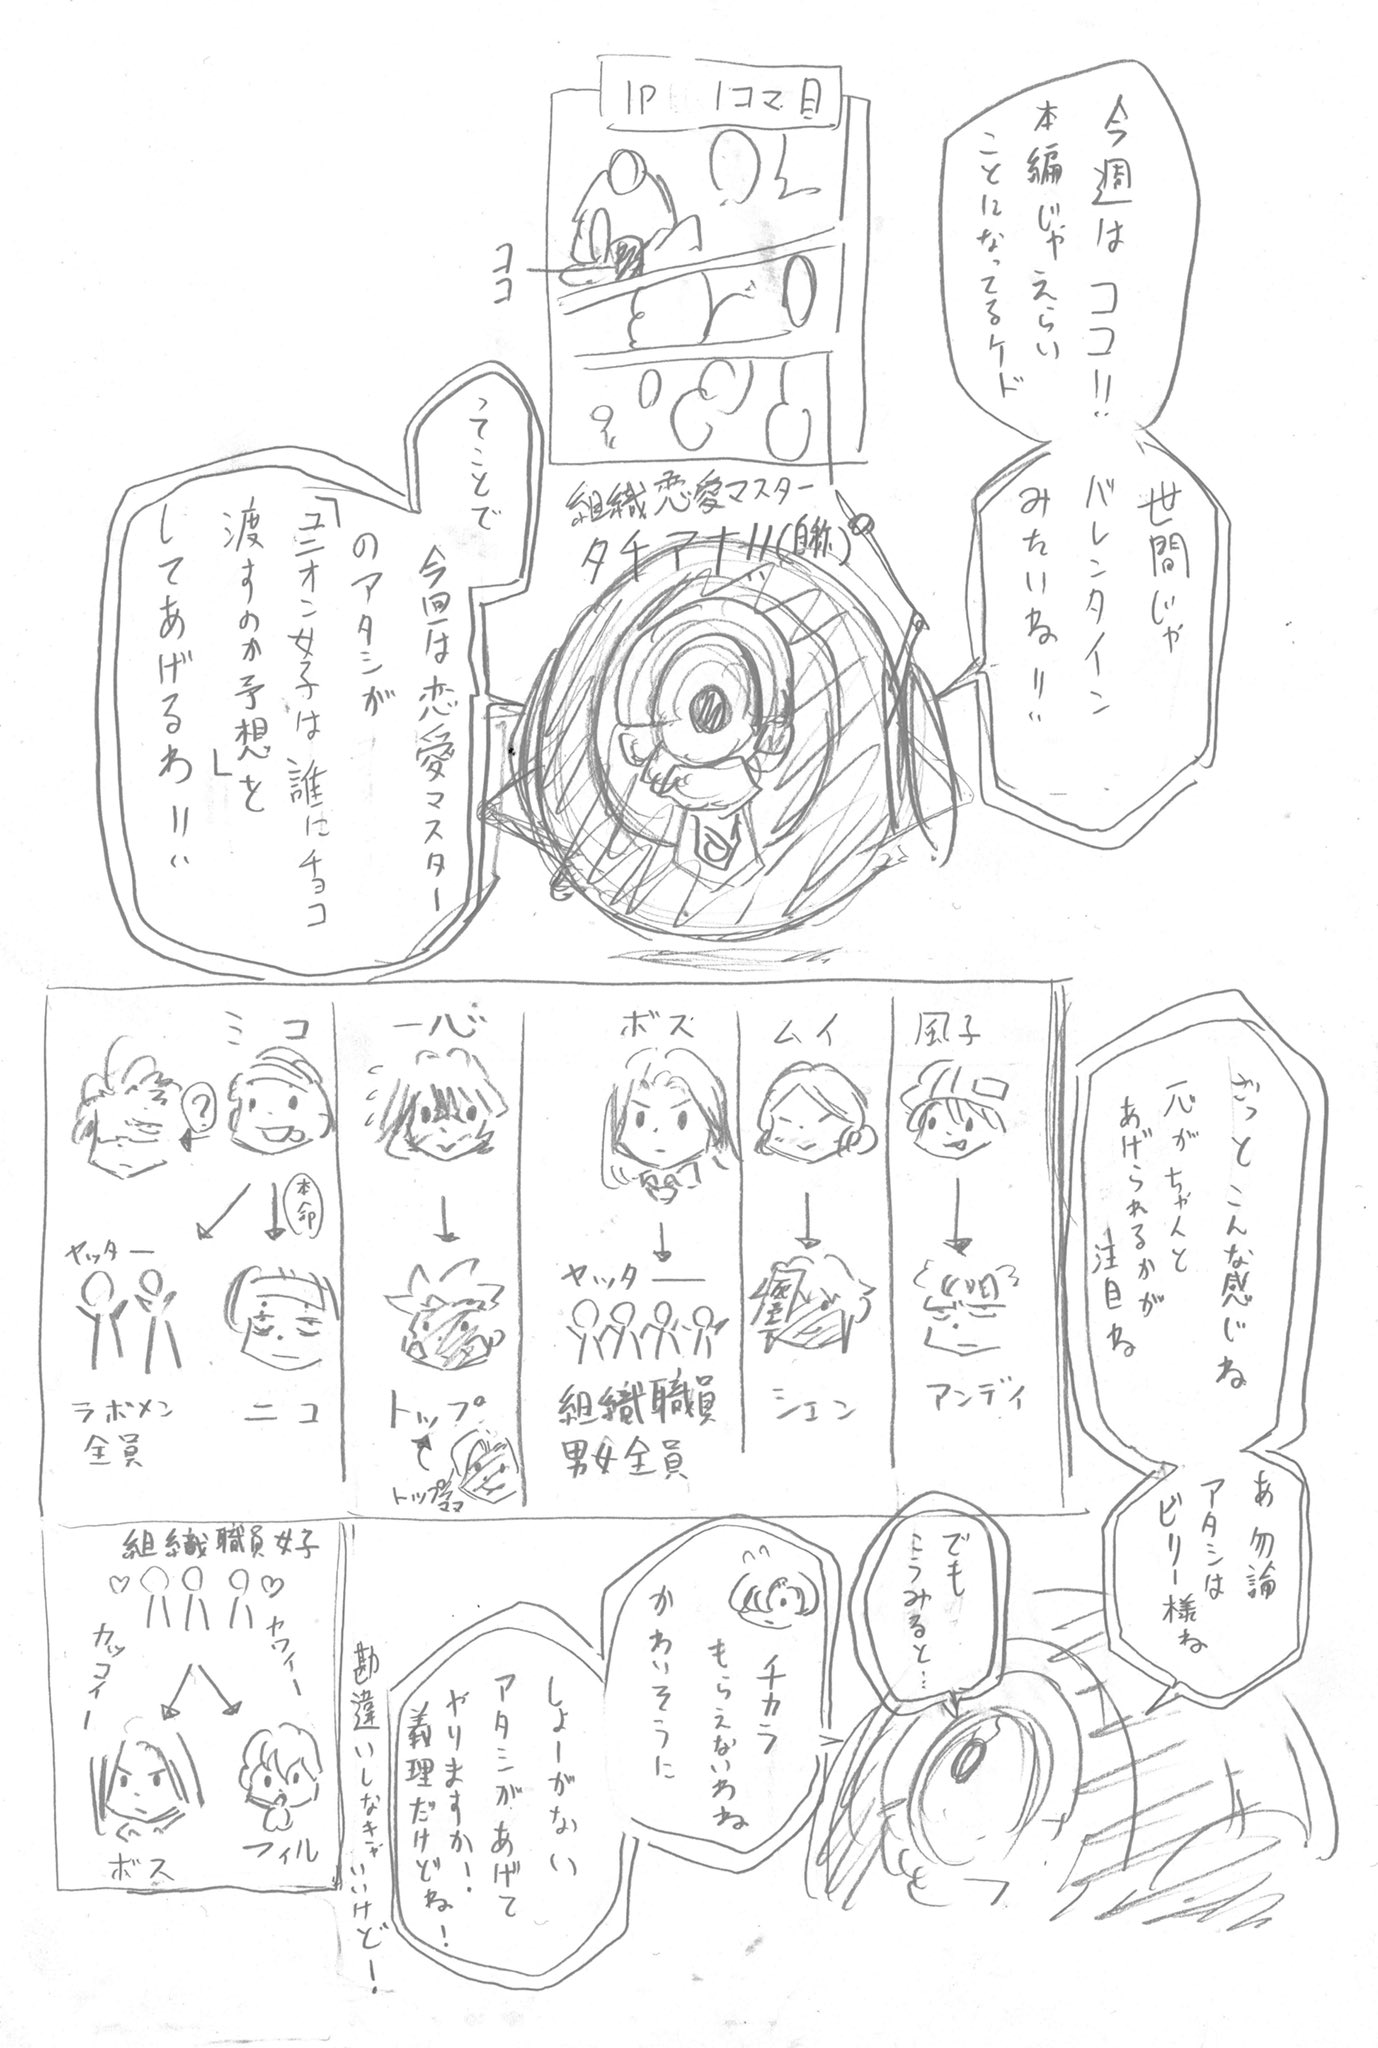 1P 1コマ目
ココ
今週はココ!!
本編じゃえらい
ことになってるケド
世間じゃ
バレンタイン
みたいね!!
組織恋愛マスター
タチアナ!!(自称)
ってことで
今回は恋愛マスター
のアタシが
「ユニオン女子は誰にチョコ
渡すのか予想」を
してあげるわ!!
風子
アンディ
ムイ
シェン
ボス
ヤッター
組織職員
男女全員
一心
トップ
トップママ
ミコ
?
本命
ニコ
ヤッター
ラボメン
全員
ざっとこんな感じね
一心がちゃんと
あげられるかが
注目ね
あ 勿論
アタシは
ビリー様ね
でも
こうみると…
チカラ
もらえないわね
かわいそうに
しょーがない
アタシがあげて
やりますか!
義理だけどね!
勘違いしなきゃいいけど!
組織職員女子
カワイー
カッコイー
フィル
ボス